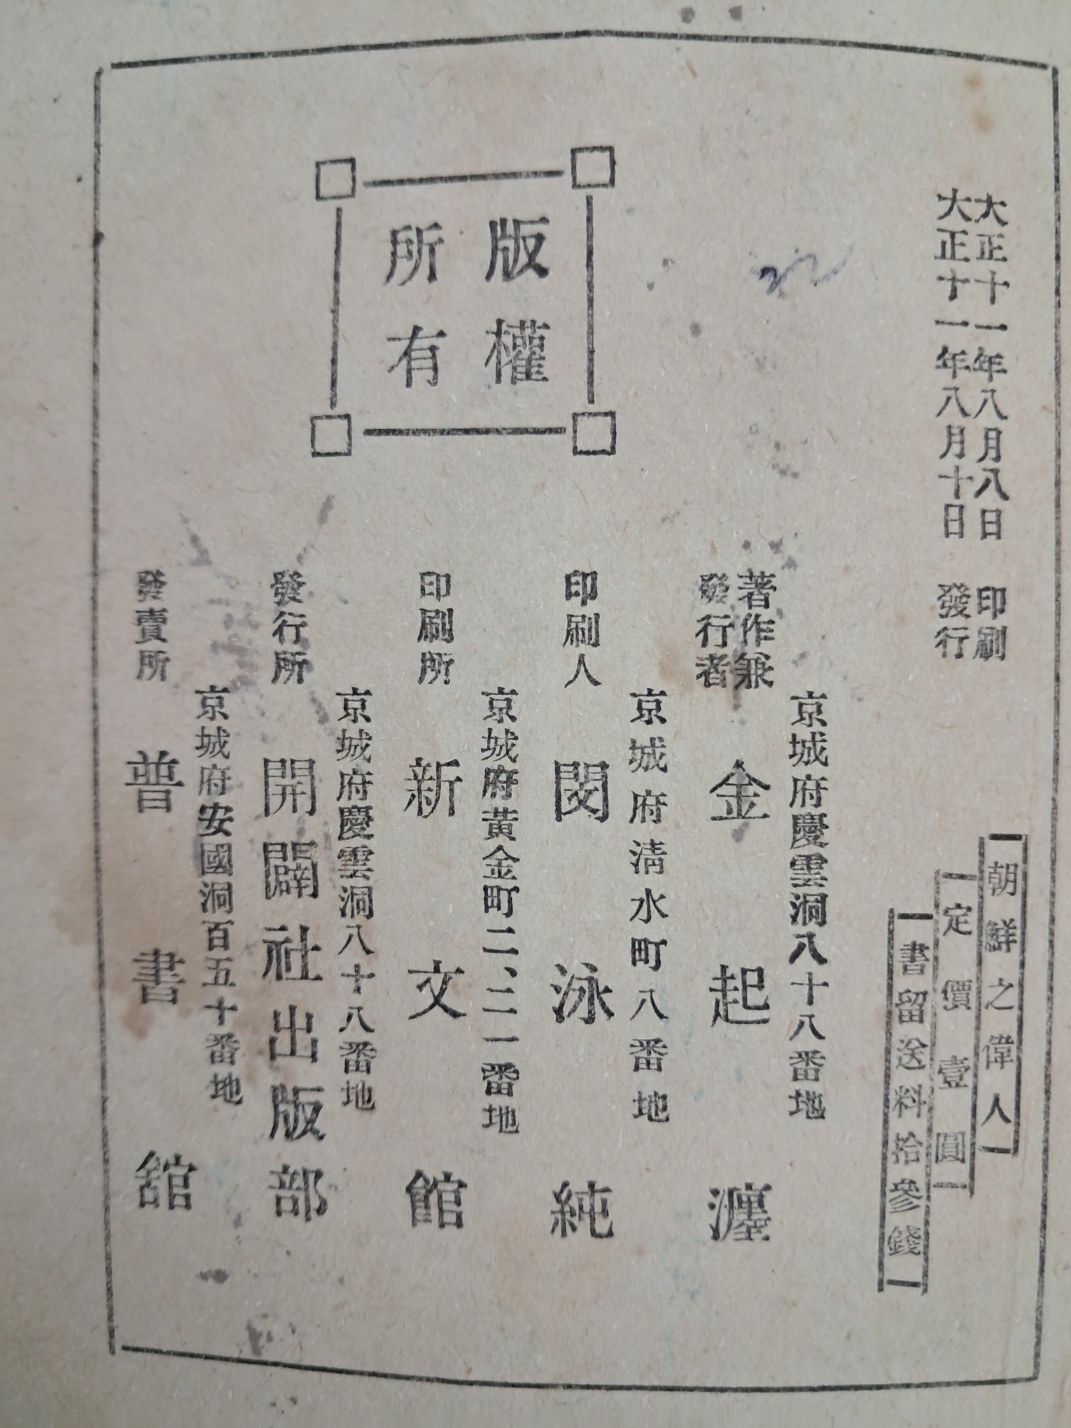 大正十一年八月八日 印刷
大正十一年八月十日 發行
朝鮮之偉人
定價壹圓
書留送料拾參錢
版權
所有
京城府慶雲洞八十八番地
著作兼
發行者
金起瀍
京城府淸水町八番地
印刷人 閔泳純
京城府黃金町二、二一番地
印刷所 新文館
京城府慶雲洞八十八番地
發行所 開闢社出版部
京城府安國洞百五十番地
發賣所 普書舘